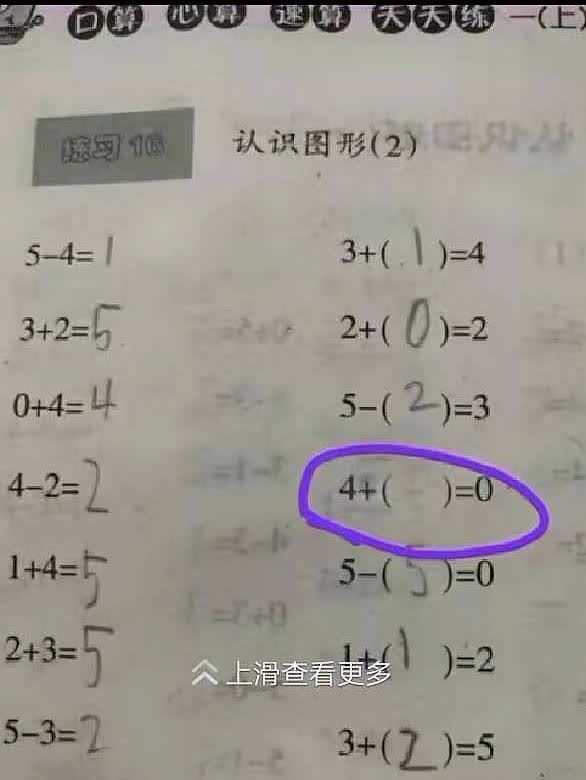 口算 心算 速算 天天练 一(上)
练习16 认识图形(2)
5-4=1 3+(1)=4
3+2=5 2+(0)=2
0+4=4 5-(2)=3
4-2=2 4+( )=0
1+4=5 5-(5)=0
2+3=5 1+(1)=2
上滑查看更多
5-3=2 3+(2)=5